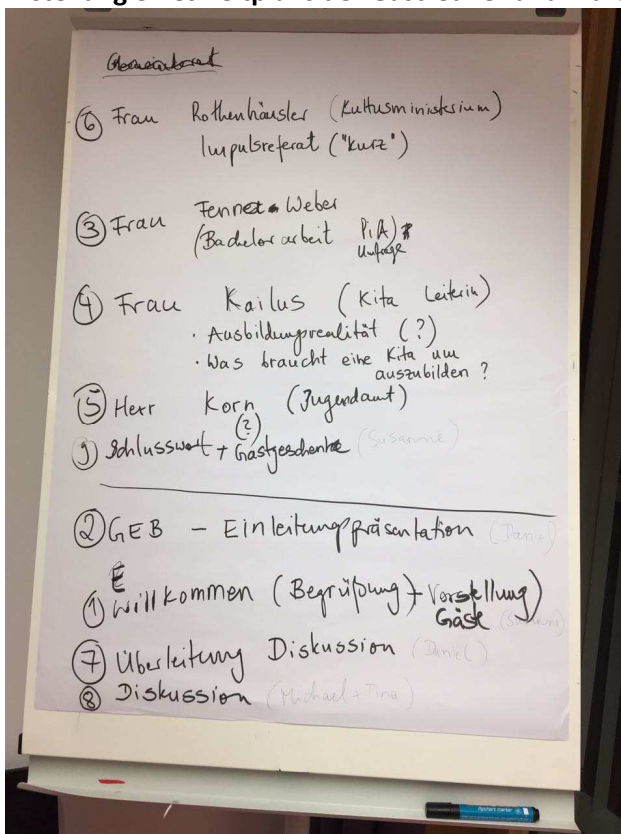 ⑥ Frau Rothenhäusler (Kultusministerium)
Impulsreferat ("Kurz")
③ Frau Fennet Weber
(Bachelorarbeit PiA)
Umfrage
④ Frau Kailus (Kita Leiterin)
· Ausbildungsrealität (?)
· Was braucht eine Kita um
auszubilden ?
⑤ Herr Korn (Jugendamt)
(?)
⑨ Schlusswort + Gastgeschenke (Susanne)
② GEB – Einleitungspräsentation (Daniel)
① Willkommen (Begrüßung) + Vorstellung)
Gäste (Susanne)
⑦ Überleitung Diskussion (Daniel)
⑧ Diskussion (Michael + Tina)